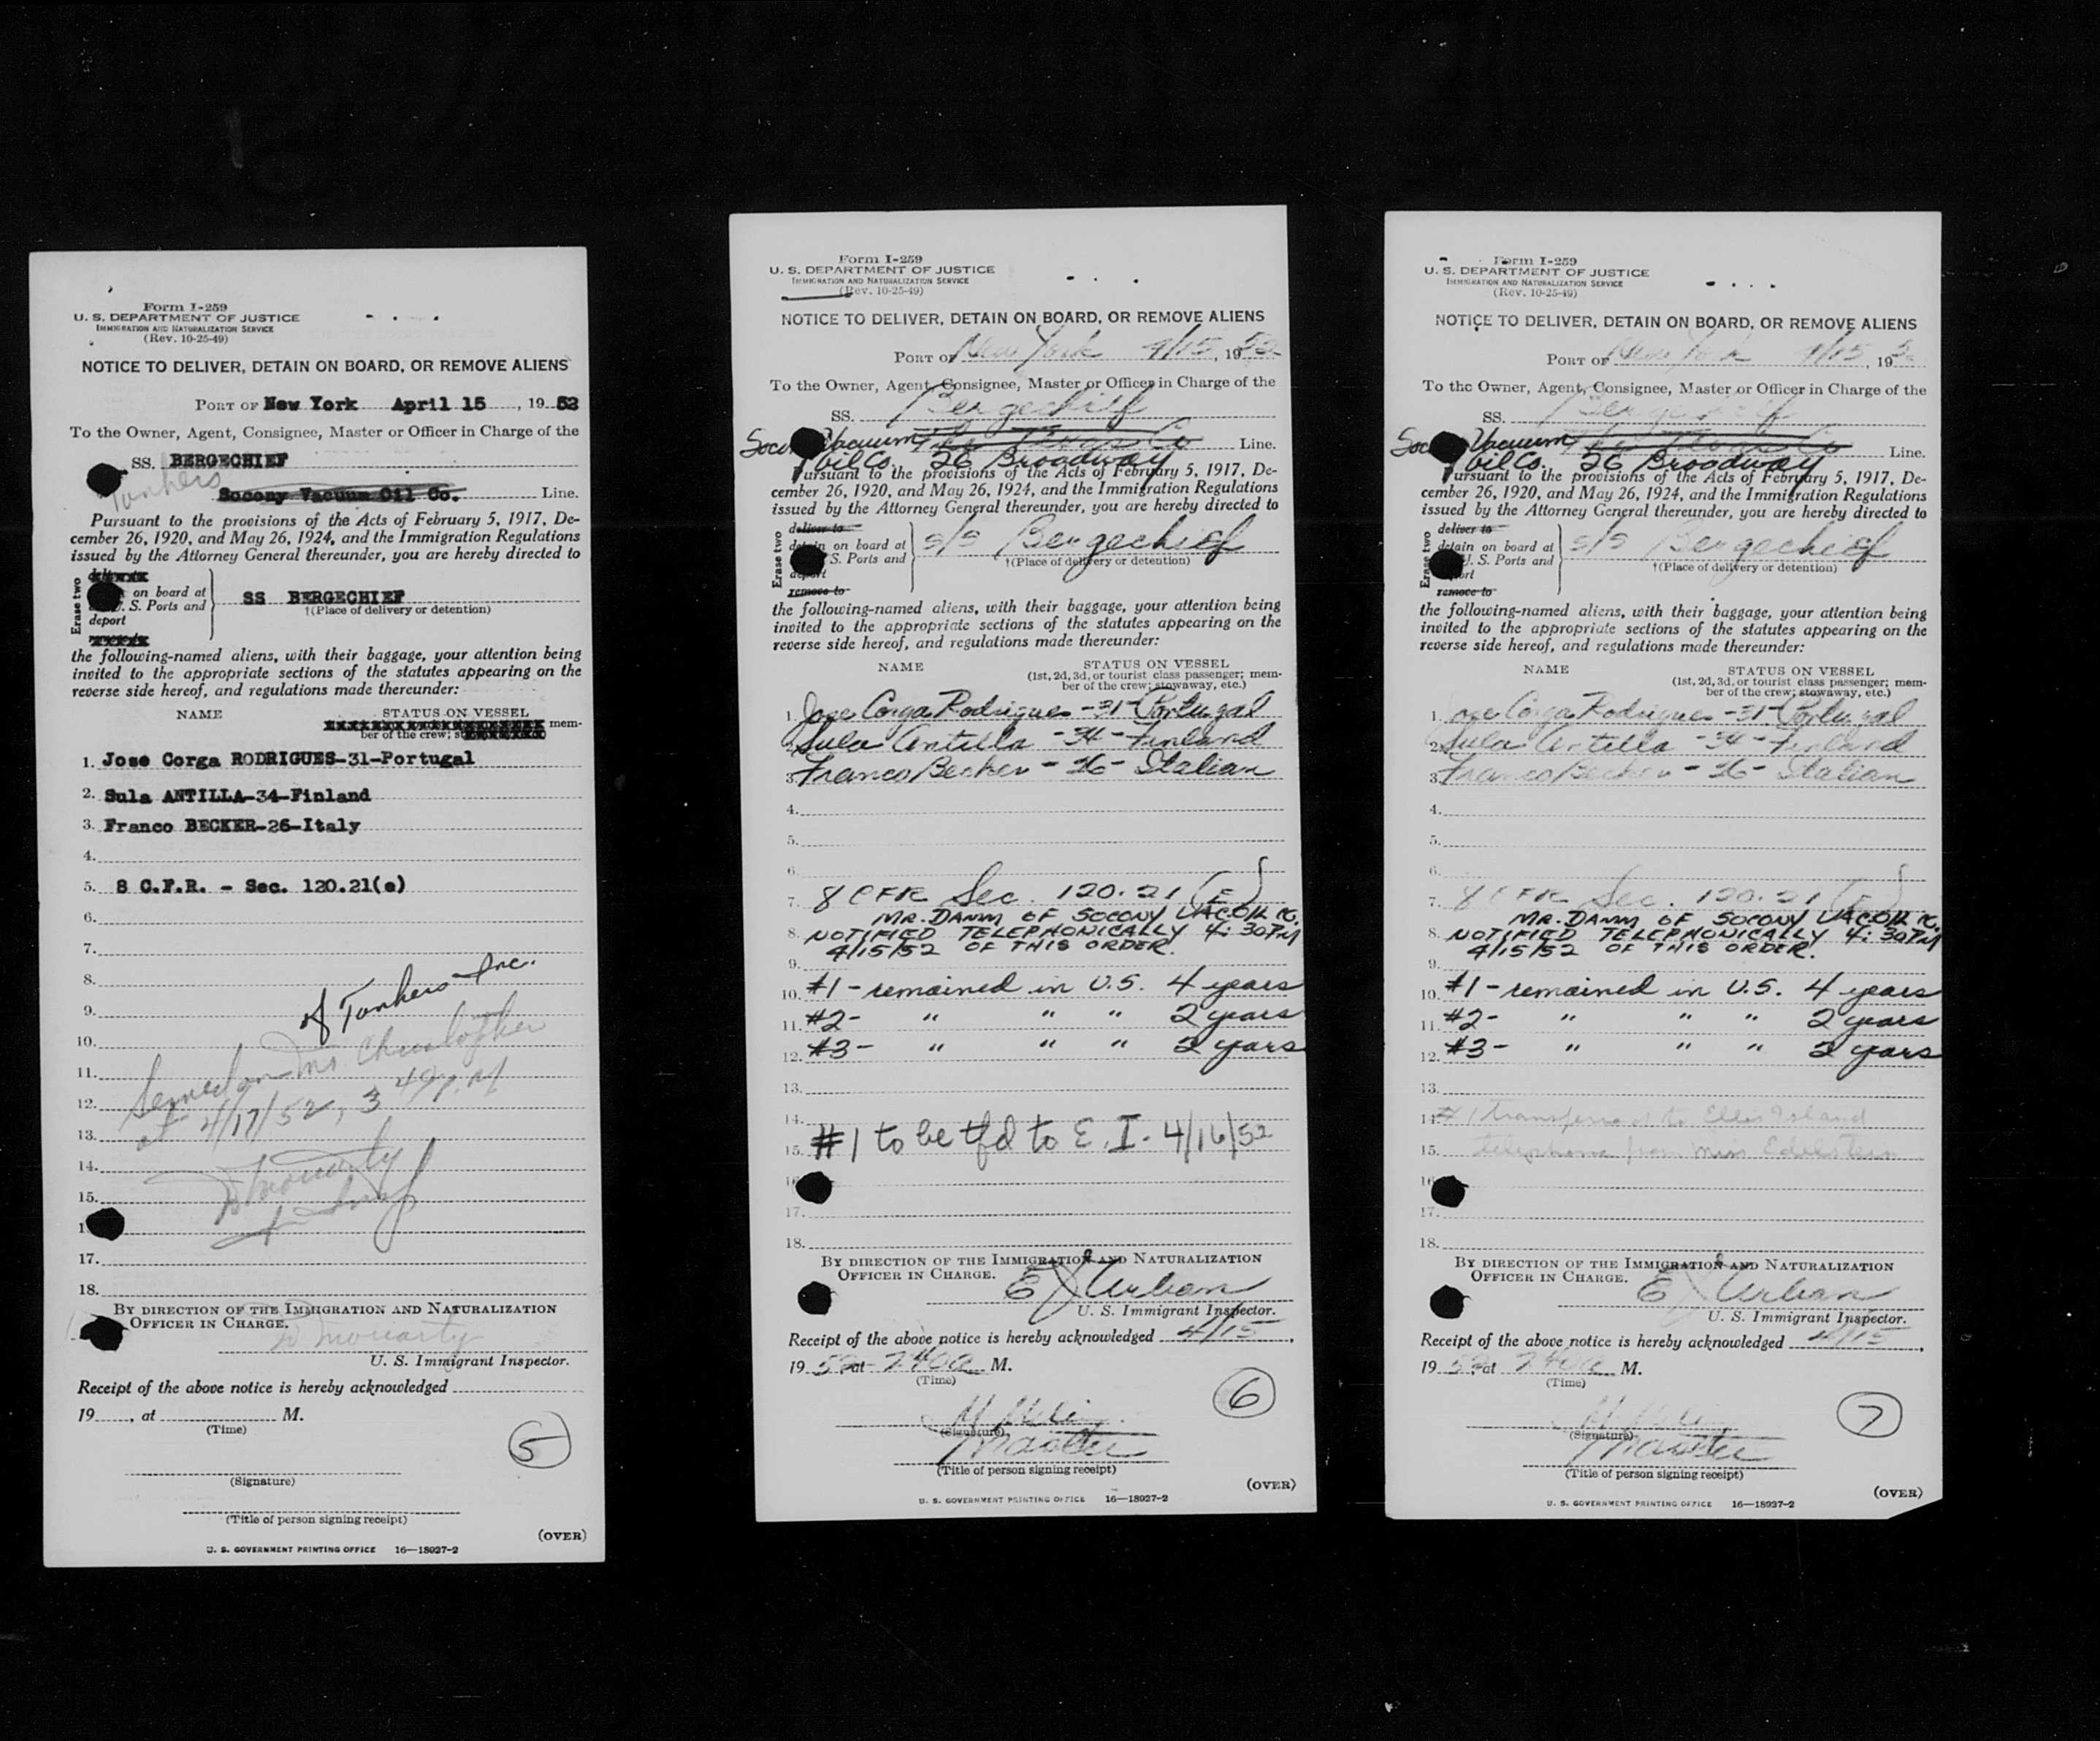 Form I-259
U. S. DEPARTMENT OF JUSTICE
IMMIGRATION AND NATURALIZATION SERVICE
(Rev. 10-25-49)
NOTICE TO DELIVER, DETAIN ON BOARD, OR REMOVE ALIENS
PORT OF New York April 15, 1952
To the Owner, Agent, Consignee, Master or Officer in Charge of the
SS. BERGECHIEF
Tankers
Socony Vacuum Oil Co. Line.
Pursuant to the provisions of the Acts of February 5, 1917, De-
cember 26, 1920, and May 26, 1924, and the Immigration Regulations
issued by the Attorney General thereunder, you are hereby directed to
Erase two
on board at
U. S. Ports and
deport
SS BERGECHIEF
†(Place of delivery or detention)
the following-named aliens, with their baggage, your attention being
invited to the appropriate sections of the statutes appearing on the
reverse side hereof, and regulations made thereunder:
NAME STATUS ON VESSEL
mem-
ber of the crew;
1. Jose Corga RODRIGUES-31-Portugal
2. Sula ANTILLA-34-Finland
3. Franco BECKER-26-Italy
4.
5. 8 C.F.R. - Sec. 120.21(e)
6.
7.
8.
9. of Tankers Inc.
10.
11. Served on Mr. Christopher
12. at 4/17/52, 3 40 P.M
13.
14. D Moriarty
15.
17.
18.
BY DIRECTION OF THE IMMIGRATION AND NATURALIZATION
OFFICER IN CHARGE.
D Moriarty
U. S. Immigrant Inspector.
Receipt of the above notice is hereby acknowledged
19 , at M.
(Time)
5
(Signature)
(Title of person signing receipt)
(OVER)
U. S. GOVERNMENT PRINTING OFFICE 16—18927-2
Form I-259
U. S. DEPARTMENT OF JUSTICE
IMMIGRATION AND NATURALIZATION SERVICE
(Rev. 10-25-49)
NOTICE TO DELIVER, DETAIN ON BOARD, OR REMOVE ALIENS
PORT OF New York 4/15, 1952
To the Owner, Agent, Consignee, Master or Officer in Charge of the
SS. Bergechief
Vacuum Line.
Oil Co. 26 Broadway
Pursuant to the provisions of the Acts of February 5, 1917, De-
cember 26, 1920, and May 26, 1924, and the Immigration Regulations
issued by the Attorney General thereunder, you are hereby directed to
Erase two
deliver to
detain on board at
U. S. Ports and
deport
remove to
s/s Bergechief
†(Place of delivery or detention)
the following-named aliens, with their baggage, your attention being
invited to the appropriate sections of the statutes appearing on the
reverse side hereof, and regulations made thereunder:
NAME STATUS ON VESSEL
(1st, 2d, 3d, or tourist class passenger; mem-
ber of the crew; stowaway, etc.)
1. Jose Corga Rodrigues -31- Portugal
2. Sula Antilla -34- Finland
3. Franco Becker - 26- Italian
4.
5.
6.
7. 8 CFR Sec. 120.21 (E)
MR. DAMM OF SOCONY VAC OIL CO.
8. NOTIFIED TELEPHONICALLY 4:30PM
4/15/52 OF THIS ORDER.
9.
10. #1 - remained in U.S. 4 years
11. #2- " " " 2 years
12. #3- " " " 2 years
13.
14.
15. #1 to be tfd to E. I. 4/16/52
16.
17.
18.
BY DIRECTION OF THE IMMIGRATION AND NATURALIZATION
OFFICER IN CHARGE.
E J Urban
U. S. Immigrant Inspector.
Receipt of the above notice is hereby acknowledged 4/15,
19 52 at 240a M.
(Time)
6
(Signature)
Master
(Title of person signing receipt)
(OVER)
U. S. GOVERNMENT PRINTING OFFICE 16—18927-2
Form I-259
U. S. DEPARTMENT OF JUSTICE
IMMIGRATION AND NATURALIZATION SERVICE
(Rev. 10-25-49)
NOTICE TO DELIVER, DETAIN ON BOARD, OR REMOVE ALIENS
PORT OF New York 4/15, 195
To the Owner, Agent, Consignee, Master or Officer in Charge of the
SS. Bergechief
Vacuum Line.
Oil Co. 26 Broadway
Pursuant to the provisions of the Acts of February 5, 1917, De-
cember 26, 1920, and May 26, 1924, and the Immigration Regulations
issued by the Attorney General thereunder, you are hereby directed to
Erase two
deliver to
detain on board at
U. S. Ports and
deport
remove to
s/s Bergechief
†(Place of delivery or detention)
the following-named aliens, with their baggage, your attention being
invited to the appropriate sections of the statutes appearing on the
reverse side hereof, and regulations made thereunder:
NAME STATUS ON VESSEL
(1st, 2d, 3d, or tourist class passenger; mem-
ber of the crew; stowaway, etc.)
1. Jose Corga Rodrigues -31- Portugal
2. Sula Antilla -34- Finland
3. Franco Becker - 26- Italian
4.
5.
6.
7. 8 CFR Sec. 120.21 (E)
MR. DAMM OF SOCONY VAC OIL CO.
8. NOTIFIED TELEPHONICALLY 4:30PM
4/15/52 OF THIS ORDER.
9.
10. #1 - remained in U.S. 4 years
11. #2- " " " 2 years
12. #3- " " " 2 years
13.
14. #1 transferred to Ellis Island
15. telephone from Miss Edelstein
16.
17.
18.
BY DIRECTION OF THE IMMIGRATION AND NATURALIZATION
OFFICER IN CHARGE.
E J Urban
U. S. Immigrant Inspector.
Receipt of the above notice is hereby acknowledged 4/15,
19 52 at 240a M.
(Time)
7
(Signature)
Master
(Title of person signing receipt)
(OVER)
U. S. GOVERNMENT PRINTING OFFICE 16—18927-2